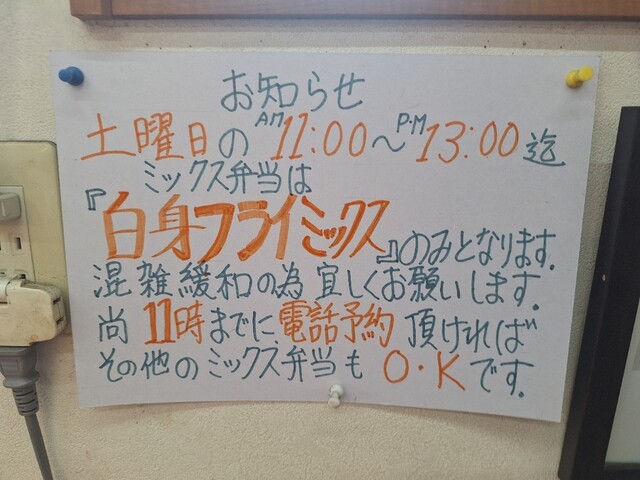 お知らせ
土曜日のAM11:00～P.M13:00迄
ミックス弁当は
『白身フライミックス』のみとなります.
混雑緩和の為宜しくお願いします.
尚11時までに電話予約頂ければ
その他のミックス弁当もO・Kです.